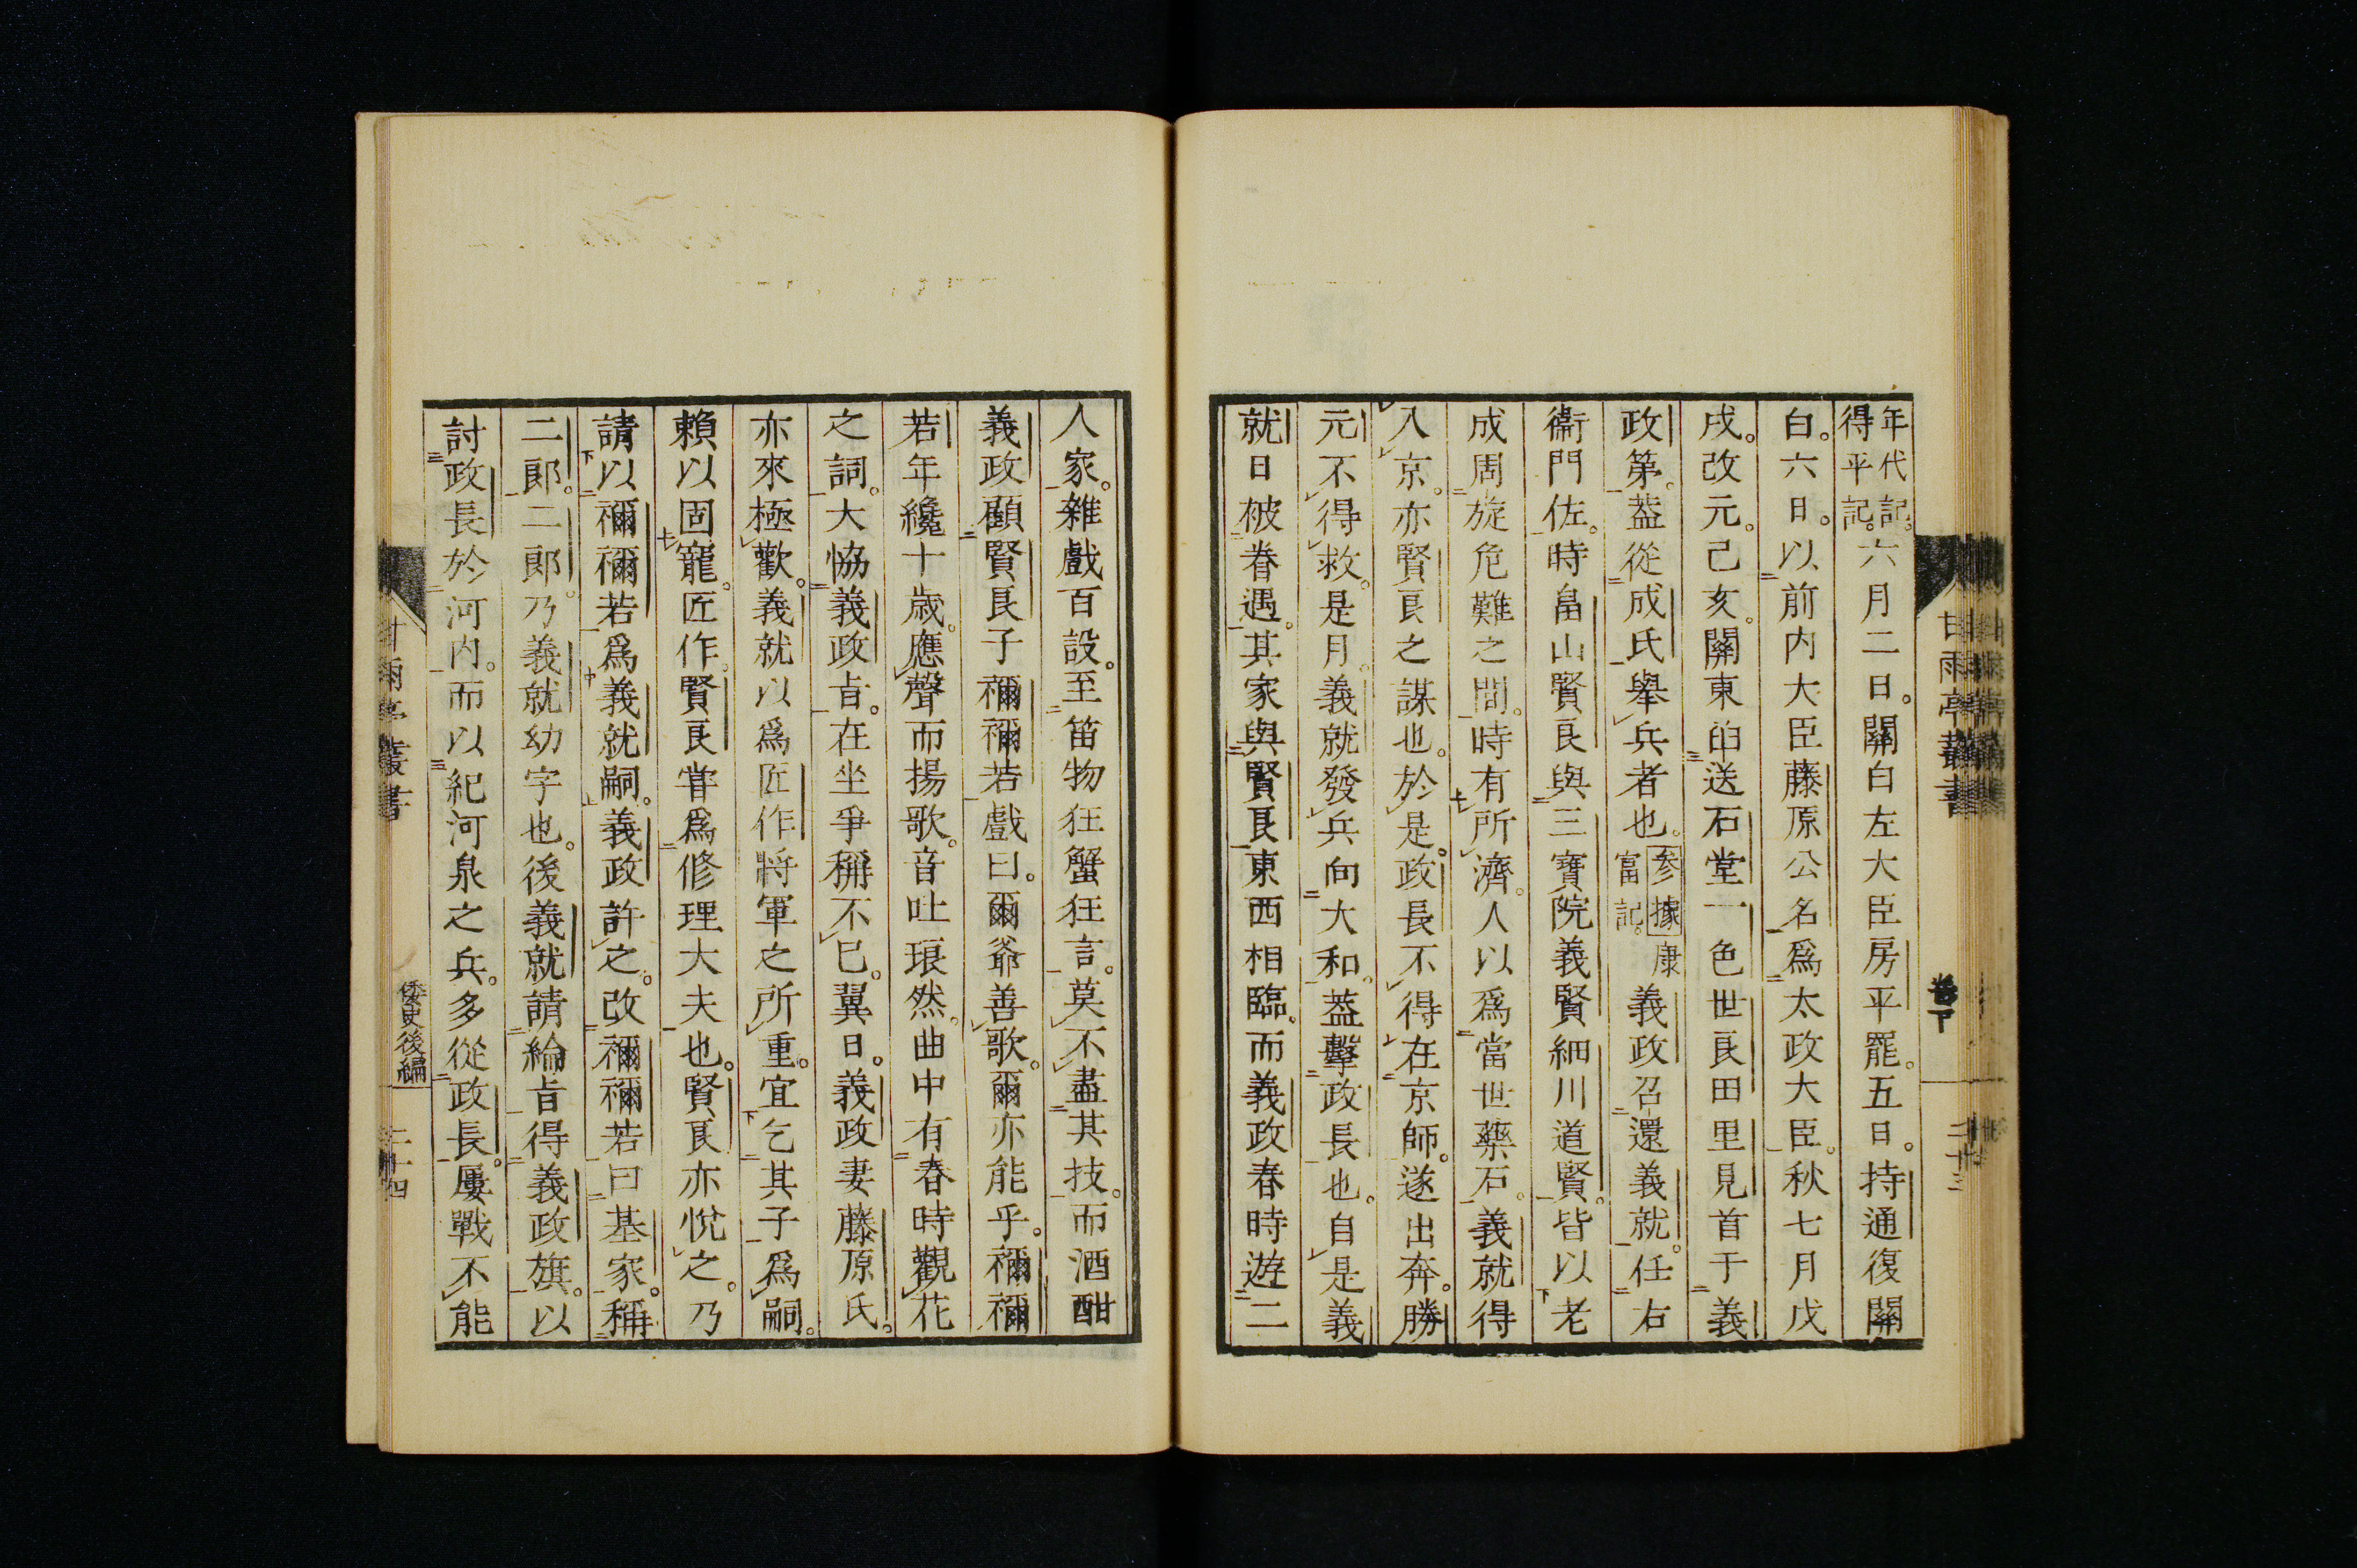 年代記。得平記。六月二日。關白左大臣房平罷。五日。持通復關
白。六日。以前内大臣藤原公名爲太政大臣。秋七月戊
戌。改元。己亥。關東函送石堂一色世良田里見首于義
政第。葢從成氏舉兵者也。参據康富記。義政召還義就。任右
衞門佐。時畠山賢良與三寶院義賢細川道賢。皆以老
成周旋危難之間。時有所濟。人以爲當世藥石。義就得
入京。亦賢良之謀也。於是。政長不得在京師。遂出奔。勝
元不得救。是月。義就發兵向大和。葢擊政長也。自是義
就日被眷遇。其家與賢良東西相臨。而義政春時遊二
甘雨亭叢書
卷下
二十三
人家。雜戲百設。至笛物狂蟹狂言。莫不盡其技。而酒酣
義政顧賢良子禰禰若戲曰。爾爺善歌。爾亦能乎。禰禰
若年纔十歳。應聲而揚歌。音吐琅然。曲中有春時觀花
之詞。大恊義政㫖。在坐爭稱不已。翼日。義政妻藤原氏。
亦來極歡。義就以爲匠作將軍之所重。宜乞其子爲嗣。
賴以固寵。匠作。賢良甞爲修理大夫也。賢良亦悅之。乃
請以禰禰若爲義就嗣。義政許之。改禰禰若曰基家。稱
二郎。二郎。乃義就幼字也。後義就請綸㫖得義政旗。以
討政長於河内。而以紀河泉之兵。多從政長。屢戰不能
甘雨亭叢書
倭史後編
二十四